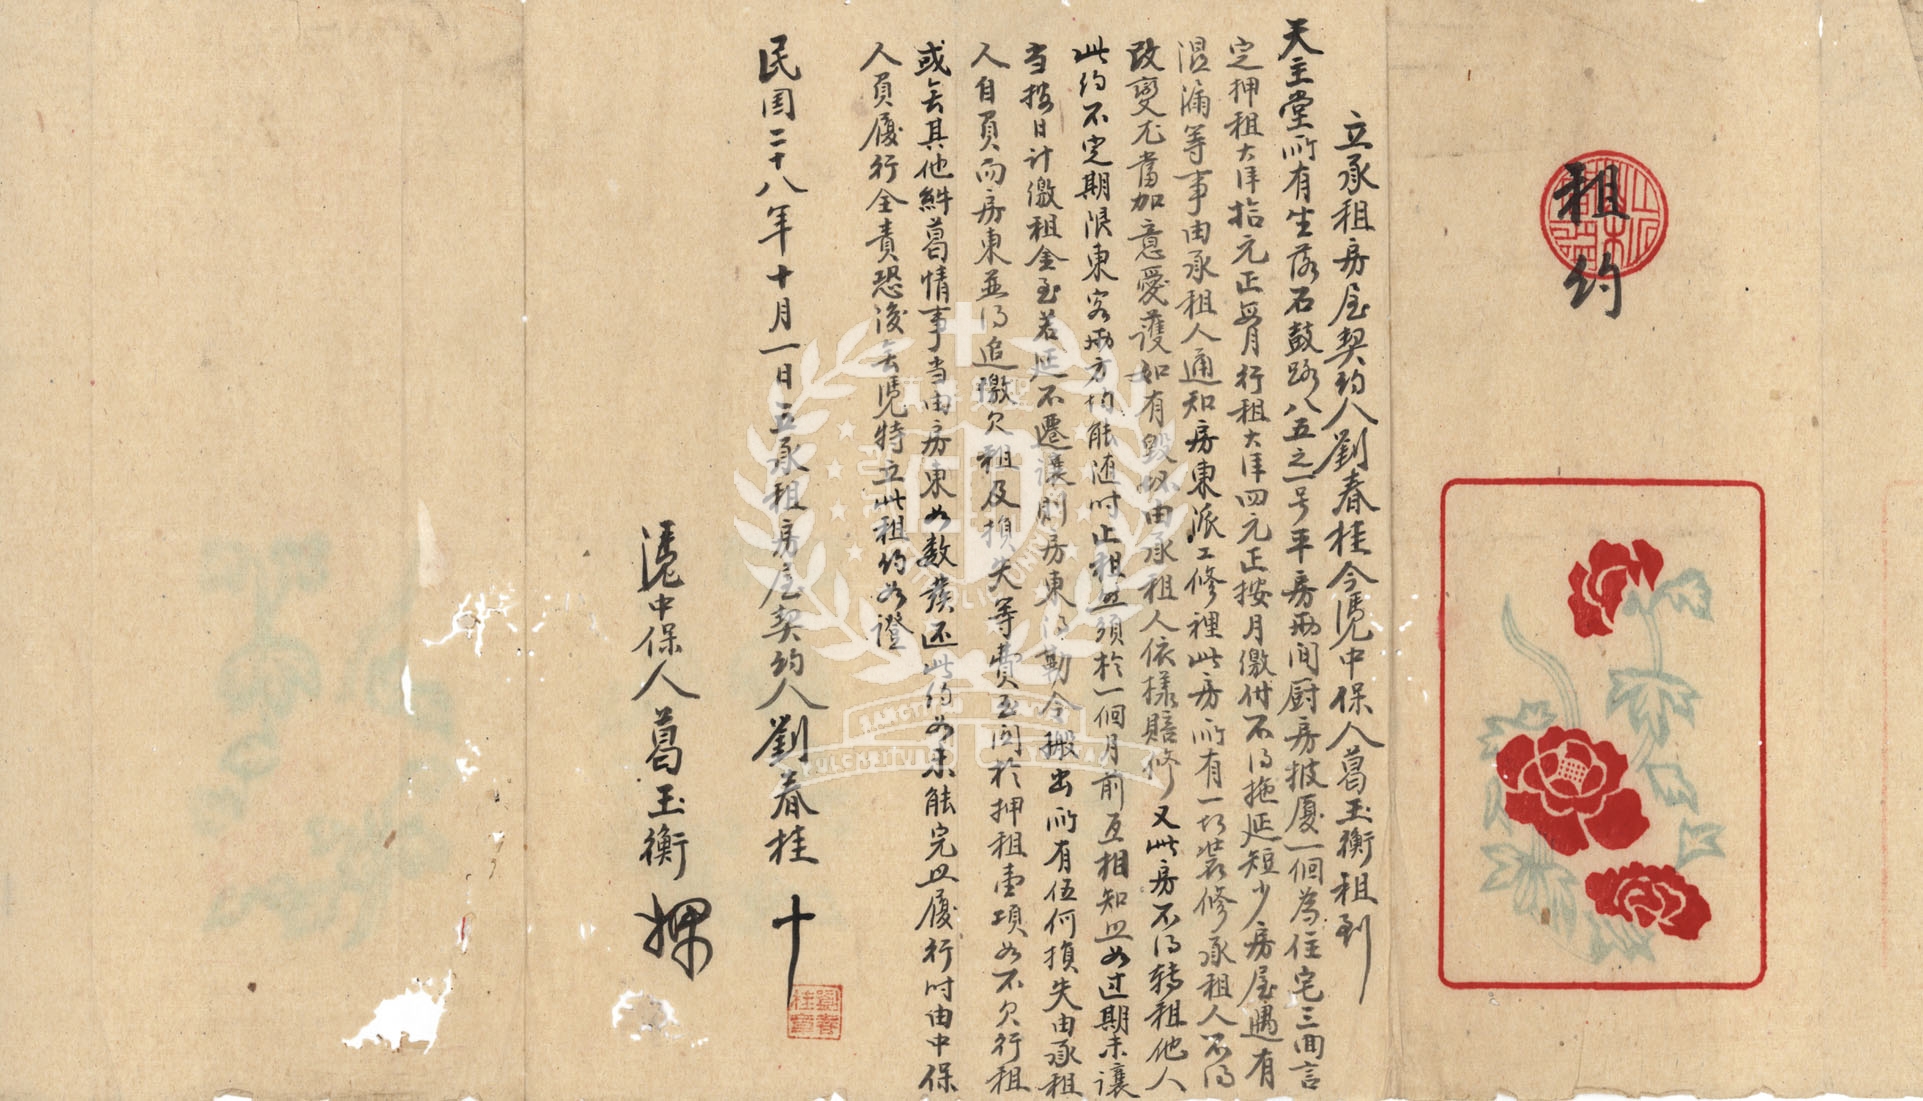 租约
立承租房屋契约人劉春桂今憑中保人葛玉衡租到
天主堂所有坐落石鼓路八五之一号平房两间厨房披厦一個為住宅三面言
定押租大洋拾元正每月行租大洋四元正按月繳付不得拖延短少房屋遇有
漏等事由承租人通知房東派工修裡此房所有一切装修承租人不得
改變尤當加意愛護如有毀坏由承租人依樣賠修又此房不得轉租他人
此约不定期限東客两方均能随时止租並須於一個月前互相知照如过期未讓
当按日计繳租金至若延不遷讓則房東得勒令搬出所有伍何損失由承租
人自負而房東並得追繳欠租及損失等費至関於押租壹項如不欠行租
或無其他糾葛情事当由房東如数發还此约如未能完全履行时由中保
人負履行全責恐後無憑特立此租约为證
民国二十八年十月一日立承租房屋契约人劉春桂 十
憑中保人葛玉衡 押
劉春桂章